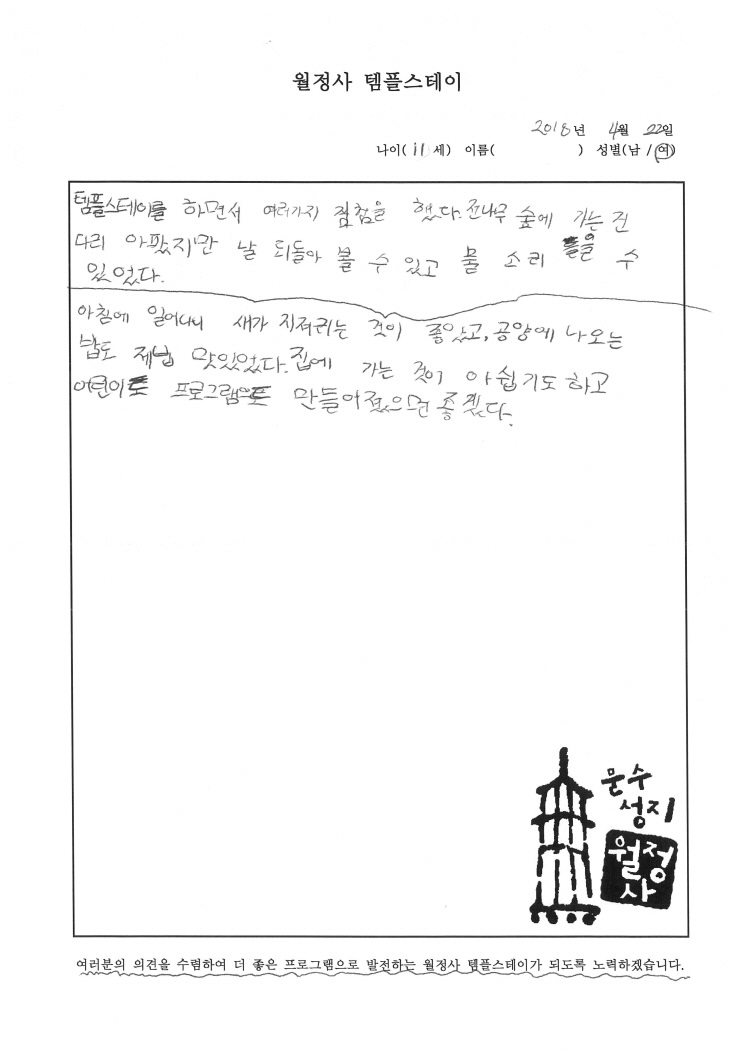 월정사 템플스테이
2018년 4월 22일
나이( 11 세) 이름( ) 성별(남 / 여)
템플스테이를 하면서 여러가지 점을 했다. 전나무 숲에 가는 건
다리 아팠지만 날 되돌아 볼 수 있고 물 소리 들을 수
있었다.
아침에 일어나니 새가 지저귀는 것이 좋았고, 공양에 나오는
밥도 제법 맛있었다. 집에 가는 것이 아쉽기도 하고
어린이 프로그램도 만들어졌으면 좋겠다.
문수
성지
월정
사
여러분의 의견을 수렴하여 더 좋은 프로그램으로 발전하는 월정사 템플스테이가 되도록 노력하겠습니다.